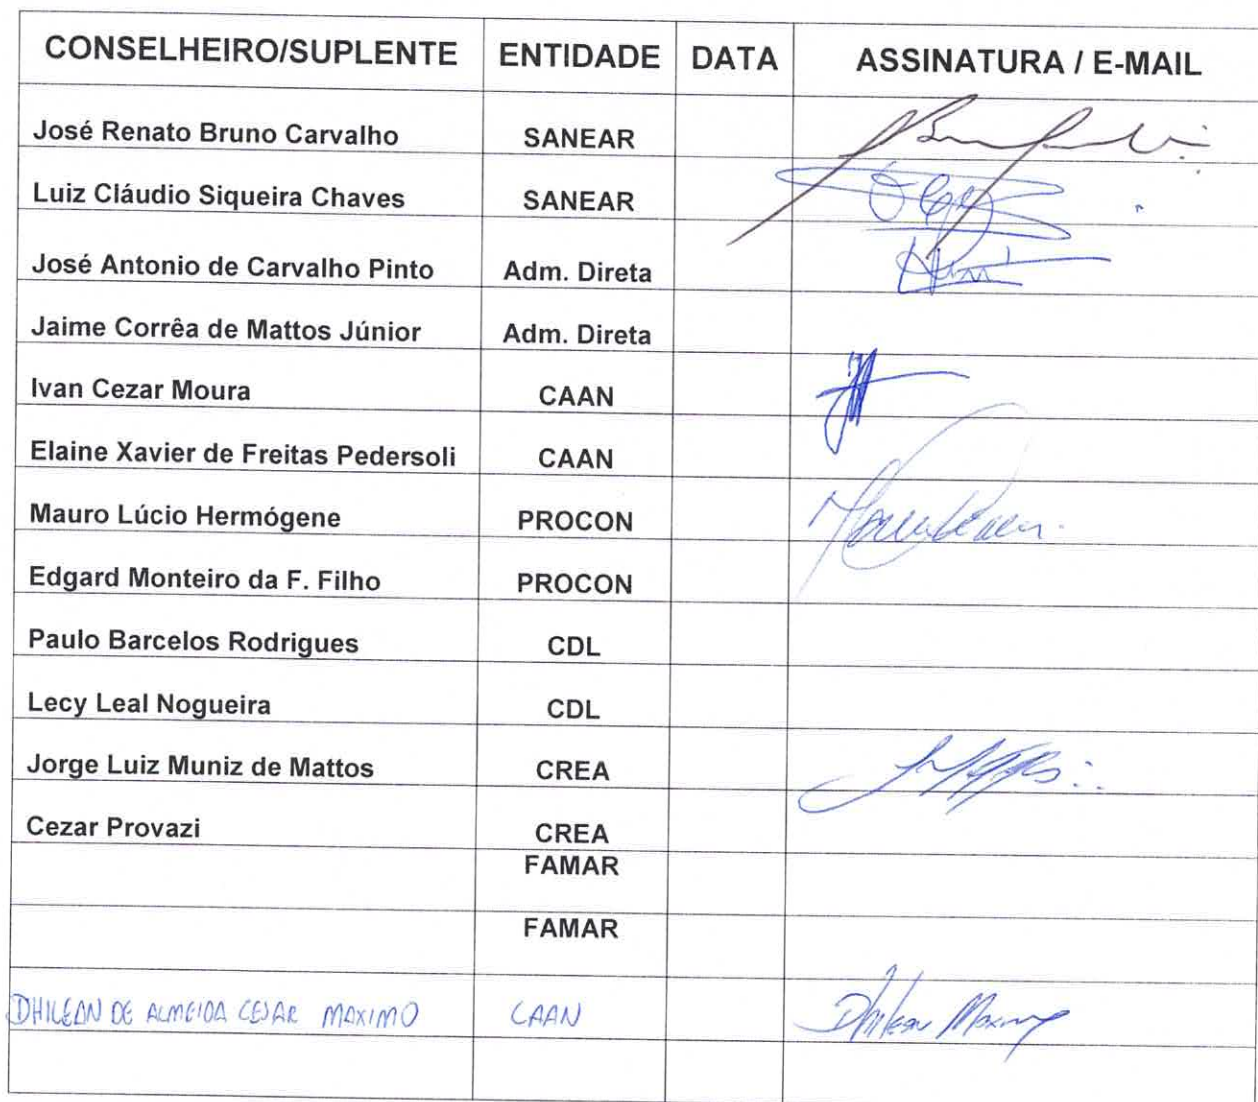 CONSELHEIRO/SUPLENTE ENTIDADE DATA ASSINATURA / E-MAIL
José Renato Bruno Carvalho SANEAR
Luiz Cláudio Siqueira Chaves SANEAR
José Antonio de Carvalho Pinto Adm. Direta
Jaime Corrêa de Mattos Júnior Adm. Direta
Ivan Cezar Moura CAAN
Elaine Xavier de Freitas Pedersoli CAAN
Mauro Lúcio Hermógene PROCON
Edgard Monteiro da F. Filho PROCON
Paulo Barcelos Rodrigues CDL
Lecy Leal Nogueira CDL
Jorge Luiz Muniz de Mattos CREA
Cezar Provazi CREA
FAMAR
FAMAR
DHILEAN DE ALMEIDA CESAR MAXIMO CAAN Dhilean Maximo